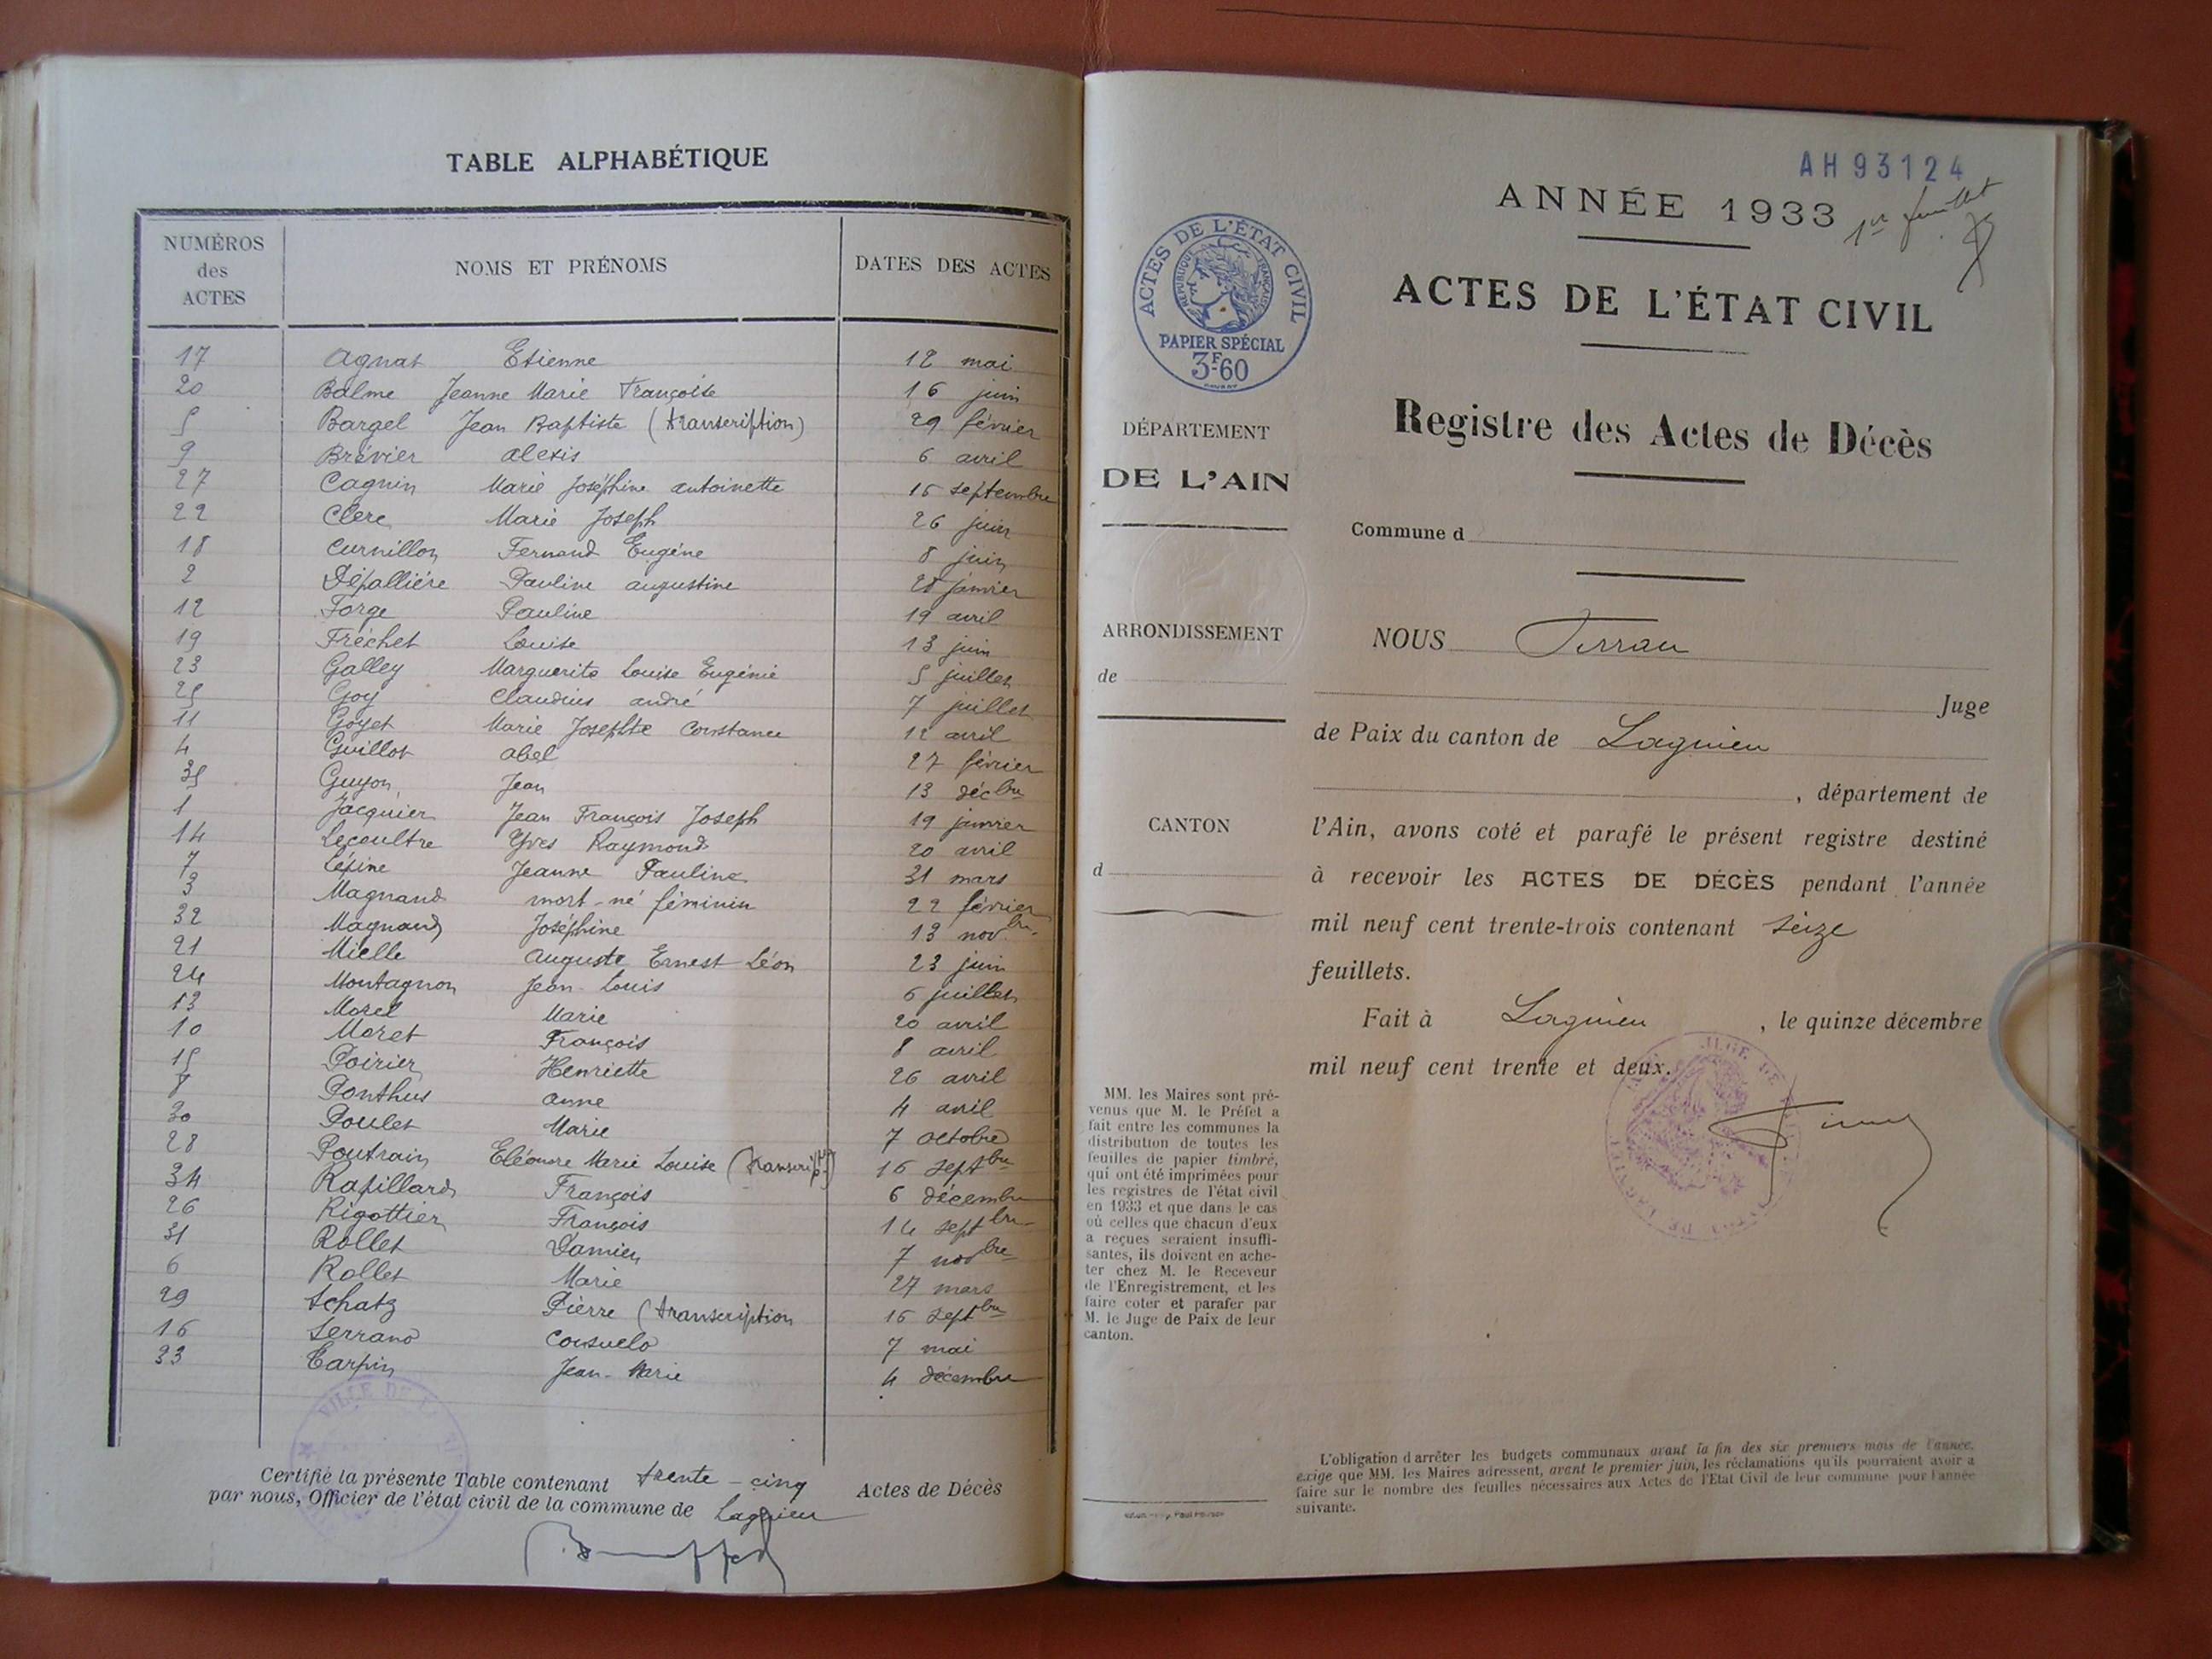 TABLE ALPHABÉTIQUE
NUMÉROS des ACTES
NOMS ET PRÉNOMS
DATES DES ACTES
17 Agnat Etienne 12 mai
20 Balme Jeanne Marie Françoise 16 juin
5 Bargel Jean Baptiste (transcription) 29 février
9 Brévier Alexis 6 avril
27 Cagnin Marie Joséphine Antoinette 15 septembre
22 Clerc Marie Joseph 26 juin
18 Curnillon Fernand Eugène 8 juin
2 Dépallière Pauline Augustine 28 janvier
12 Forge Pauline 19 avril
19 Fréchet Louise 13 juin
23 Galley Marguerite Louise Eugénie 5 juillet
25 Goy Claudius André 7 juillet
11 Goyet Marie Josephte Constance 12 avril
4 Guillot Abel 27 février
35 Guyon Jean 13 décbre
1 Jacquier Jean François Joseph 19 janvier
14 Lecoultre Yves Raymond 20 avril
7 Lépine Jeanne Pauline 31 mars
3 Magnand mort-né féminin 22 février
32 Magnand Joséphine 13 novbre
21 Mielle Auguste Ernest Léon 23 juin
24 Montagnon Jean-Louis 6 juillet
13 Morel Marie 20 avril
10 Moret François 8 avril
15 Poirier Henriette 26 avril
8 Ponthus Anne 4 avril
30 Poulet Marie 7 octobre
28 Poutrain Eléonore Marie Louise 16 septbre
34 Rapillard François 6 décembre
26 Rigottier François 14 septbre
31 Rollet Damien 7 novbre
6 Rollet Marie 27 mars
29 Schatz Pierre (transcription 16 septbre
16 Serrano Consuelo 7 mai
33 Tarpin Jean-Marie 4 décembre
VILLE DE
Certifié la présente Table contenant trente-cinq Actes de Décès
par nous, Officier de l'état civil de la commune de Lagnieu
AH 93124
ANNÉE 1933
1er feuillet
ACTES DE L'ÉTAT CIVIL
RÉPUBLIQUE FRANÇAISE
PAPIER SPÉCIAL
3F.60
ACTES DE L'ÉTAT CIVIL
Registre des Actes de Décès
DÉPARTEMENT
DE L'AIN
Commune d
ARRONDISSEMENT
de
CANTON
d
NOUS
Juge
de Paix du canton de Lagnieu
, département de
l'Ain, avons coté et parafé le présent registre destiné
à recevoir les ACTES DE DÉCÈS pendant l'année
mil neuf cent trente-trois contenant seize
feuillets.
Fait à Lagnieu, le quinze décembre
mil neuf cent trente et deux.
MM. les Maires sont pré-
venus que M. le Préfet a
fait entre les communes la
distribution de toutes les
feuilles de papier timbré,
qui ont été imprimées pour
les registres de l'état civil
en 1933 et que dans le cas
où celles que chacun d'eux
a reçues seraient insuffi-
santes, ils doivent en ache-
ter chez M. le Receveur
de l'Enregistrement, et les
faire coter et parafer par
M. le Juge de Paix de leur
canton.
L'obligation d'arrêter les budgets communaux avant la fin des six premiers mois de l'année,
exige que MM. les Maires adressent, avant le premier juin, les réclamations qu'ils pourraient avoir à
faire sur le nombre des feuilles nécessaires aux Actes de l'Etat Civil de leur commune pour l'année
suivante.